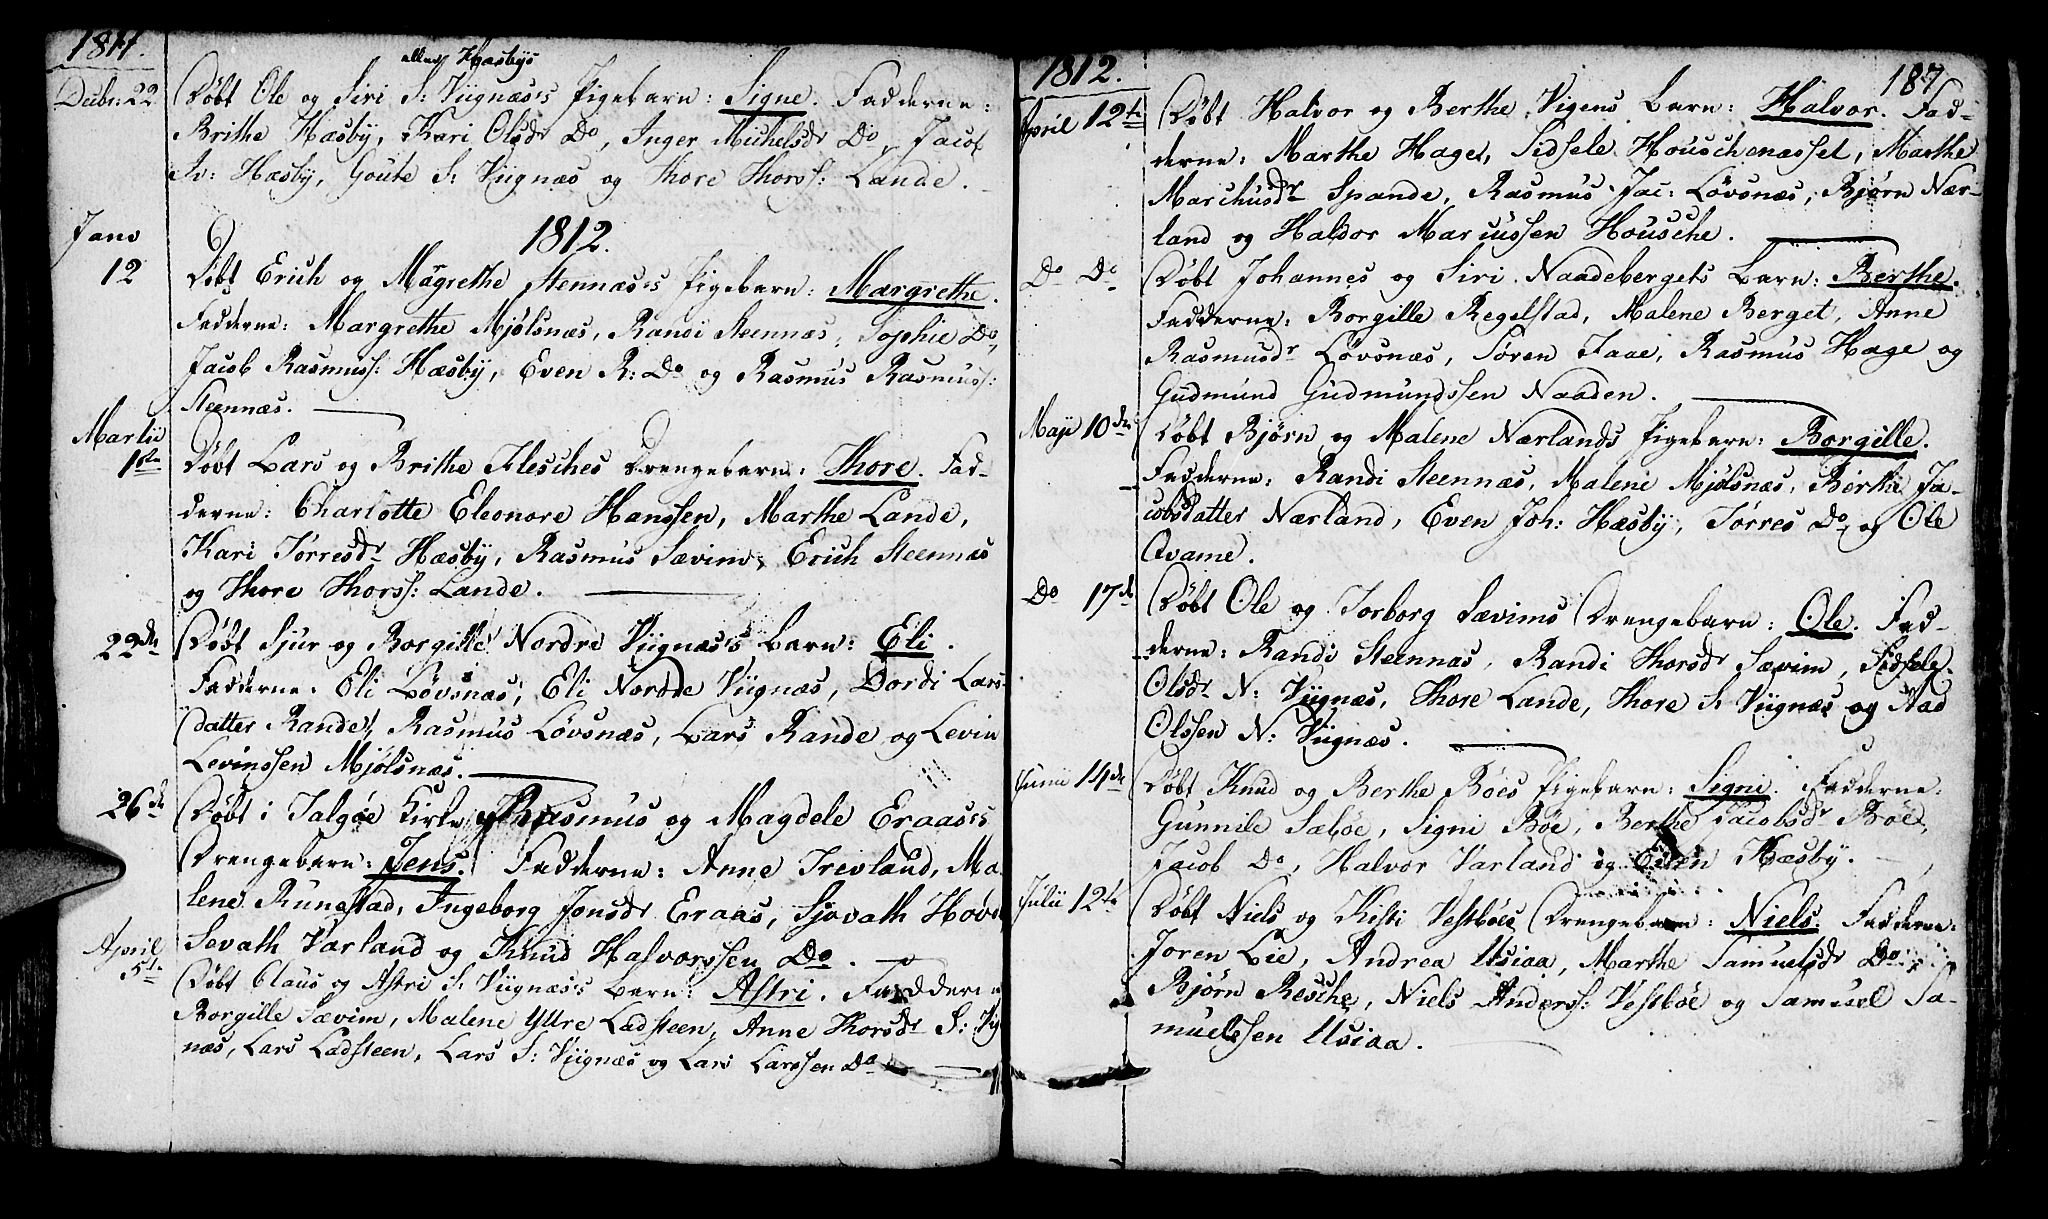 1811.
eller Hæsbys
Debr: 22 Døbt Ole og Siri S: Viignæs's Pigebarn: Signe. Fadderne:
Brithe Hæsby, Kari Olsdr Do, Inger Michelsdr Do, Jacob
Iv: Hæsby, Goute S: Viignæs og Thore Thorss: Lande.
1812.
Janv
12 Døbt Erich og Magrethe Steennæs's Pigebarn: Margrethe.
Fadderne: Margrethe Mjølsnæs, Randi Steennæs, Sophie Do,
Jacob Rasmuss: Hæsby, Even R: Do og Rasmus Rasmuss:
Steennæs.
Martii
1ste Døbt Lars og Brithe Flesches Drengebarn: Thore. Fad-
derne: Charlotte Eleonore Hanssen, Marthe Lande,
Kari Tørresdr Hæsby, Rasmus Sævim, Erich Steennæs
og Thore Thorss: Lande.
22de Døbt Sjur og Borgille Nordre Viignæs's Barn: Eli.
Fadderne: Eli Løvsnæs, Eli Nordre Viignæs, Dordi Lars-
datter Rande, Rasmus Løvsnæs, Lars Rande og Levin
Levinssen Mjølsnæs.
26de Døbt i Talgøe Kirke Rasmus og Magdele Eraas's
Drengebarn: Jens. Fadderne: Anne Trevland, Ma-
lene Runestad, Ingeborg Jonsdr Eraas, Sjovath Hove
Sevath Varland og Knud Halvorssen Do.
April
5te Døbt Claus og Astri S: Viignæs's Barn: Astri. Fadderne
Borgille Sævim, Malene Yttre Ladsteen, Anne Thorsdr S: Vig
næs, Lars Ladsteen, Lars S: Viignæs og Lars Larssen Do
1812. 187
April 12te Døbt Halvor og Berthe Vigens Barn: Halvor. Fad-
derne: Marthe Hage, Sidsele Houschenæsset, Marthe
Marchusdr Spande, Rasmus Jac: Løvsnæs, Bjørn Nær-
land og Haldor Marcussen Housche.
Do Do Døbt Johannes og Siri Naadebergets Barn: Berthe.
Fadderne: Borgille Regelstad, Malene Berget, Anne
Rasmusdr Løvsnæs, Søren Faae, Rasmus Hage og
Gudmund Gudmundssen Naaden.
Maji 10de Døbt Bjørn og Malene Nærlands Pigebarn: Borgille.
Fadderne: Randi Steennæs, Malene Mjølsnæs, Berthe Ja-
cobsdatter Nærland, Even Joh: Hæsby, Tørres Do og Ole
Qvame.
Do 17de Døbt Ole og Torborg Sævims Drengebarn: Ole. Fad-
derne: Randi Steennæs, Randi Thorsdr Sævim, Sidsele
Olsdr N: Viignæs, Thore Lande, Thore S: Viignæs og Aad
Olssen N: Viignæs.
Junii 14de Døbt Knud og Berthe Bøes Pigebarn: Signi. Fadderne:
Gunnile Sæbøe, Signi Bøe, Berthe Jacobsdr Bøe,
Jacob Do, Halvor Varland og Even Hæsby.
Julii 12te Døbt Niels og Kisti Vestbøes Drengebarn: Niels. Fadderne:
Joren Lie, Andrea Usiaa, Marthe Samuelsdr Do,
Bjørn Resche, Niels Anderss: Vestbøe og Samuel Sa-
muelssen Usiaa.